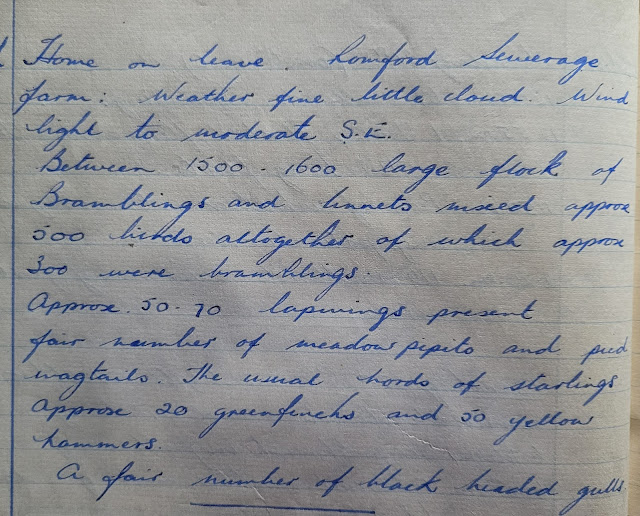 Home on leave. Romford Sewerage
farm: Weather fine little cloud. Wind
light to moderate S.E.
Between 1500 - 1600 large flock of
Bramblings and linnets mixed approx
500 birds altogether of which approx
300 were bramblings.
Approx. 50-70 lapwings present
fair number of meadow pipits and pied
wagtails. The usual hords of starlings
Approx 20 greenfinchs and 50 yellow
hammers.
A fair number of black headed gulls